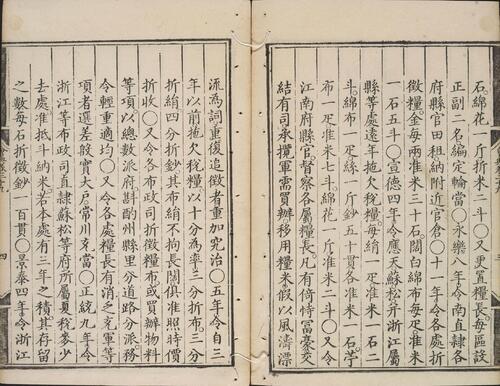 石。綿花一斤准米二斗○又更置糧長。每區設
正副二名編定輪當○永樂八年令南直隸各
府縣官田租納附近官倉○十一年令各處折
徵糧金每兩准米三十石闊白綿布每疋准米
一石五斗○宣德四年令應天蘇松并浙江屬
縣等處遠年拖欠稅糧每絹一疋准米一石二
斗綿布一疋絲一斤鈔五十貫各准米一石苧
布一疋准米七斗綿花一斤准米二斗○又令
江南府縣官督察各屬糧長。凡有倚恃富豪交
結有司承攬軍需買辦移用糧米假以風濤漂
流為詞重復追徵者重加究治○五年令自三
年以前拖欠稅糧以十分為率三分折布。三分
折絹四分折鈔其布絹不拘長闊俱准照時價
折收○又令各布政司折徵糧布。或買辦物料
等項以總數派府斟酌州縣里分道路分派務
令輕重適均○又令各處糧長有消乏充軍等
項者選差殷實大戶。常川充當○正統九年令
浙江等布政司直隸蘇松等府所屬夏稅麥少
去處准抵斗納米。若本處有三年之積。其存留
之數每石折徵鈔一百貫○景泰四年令浙江